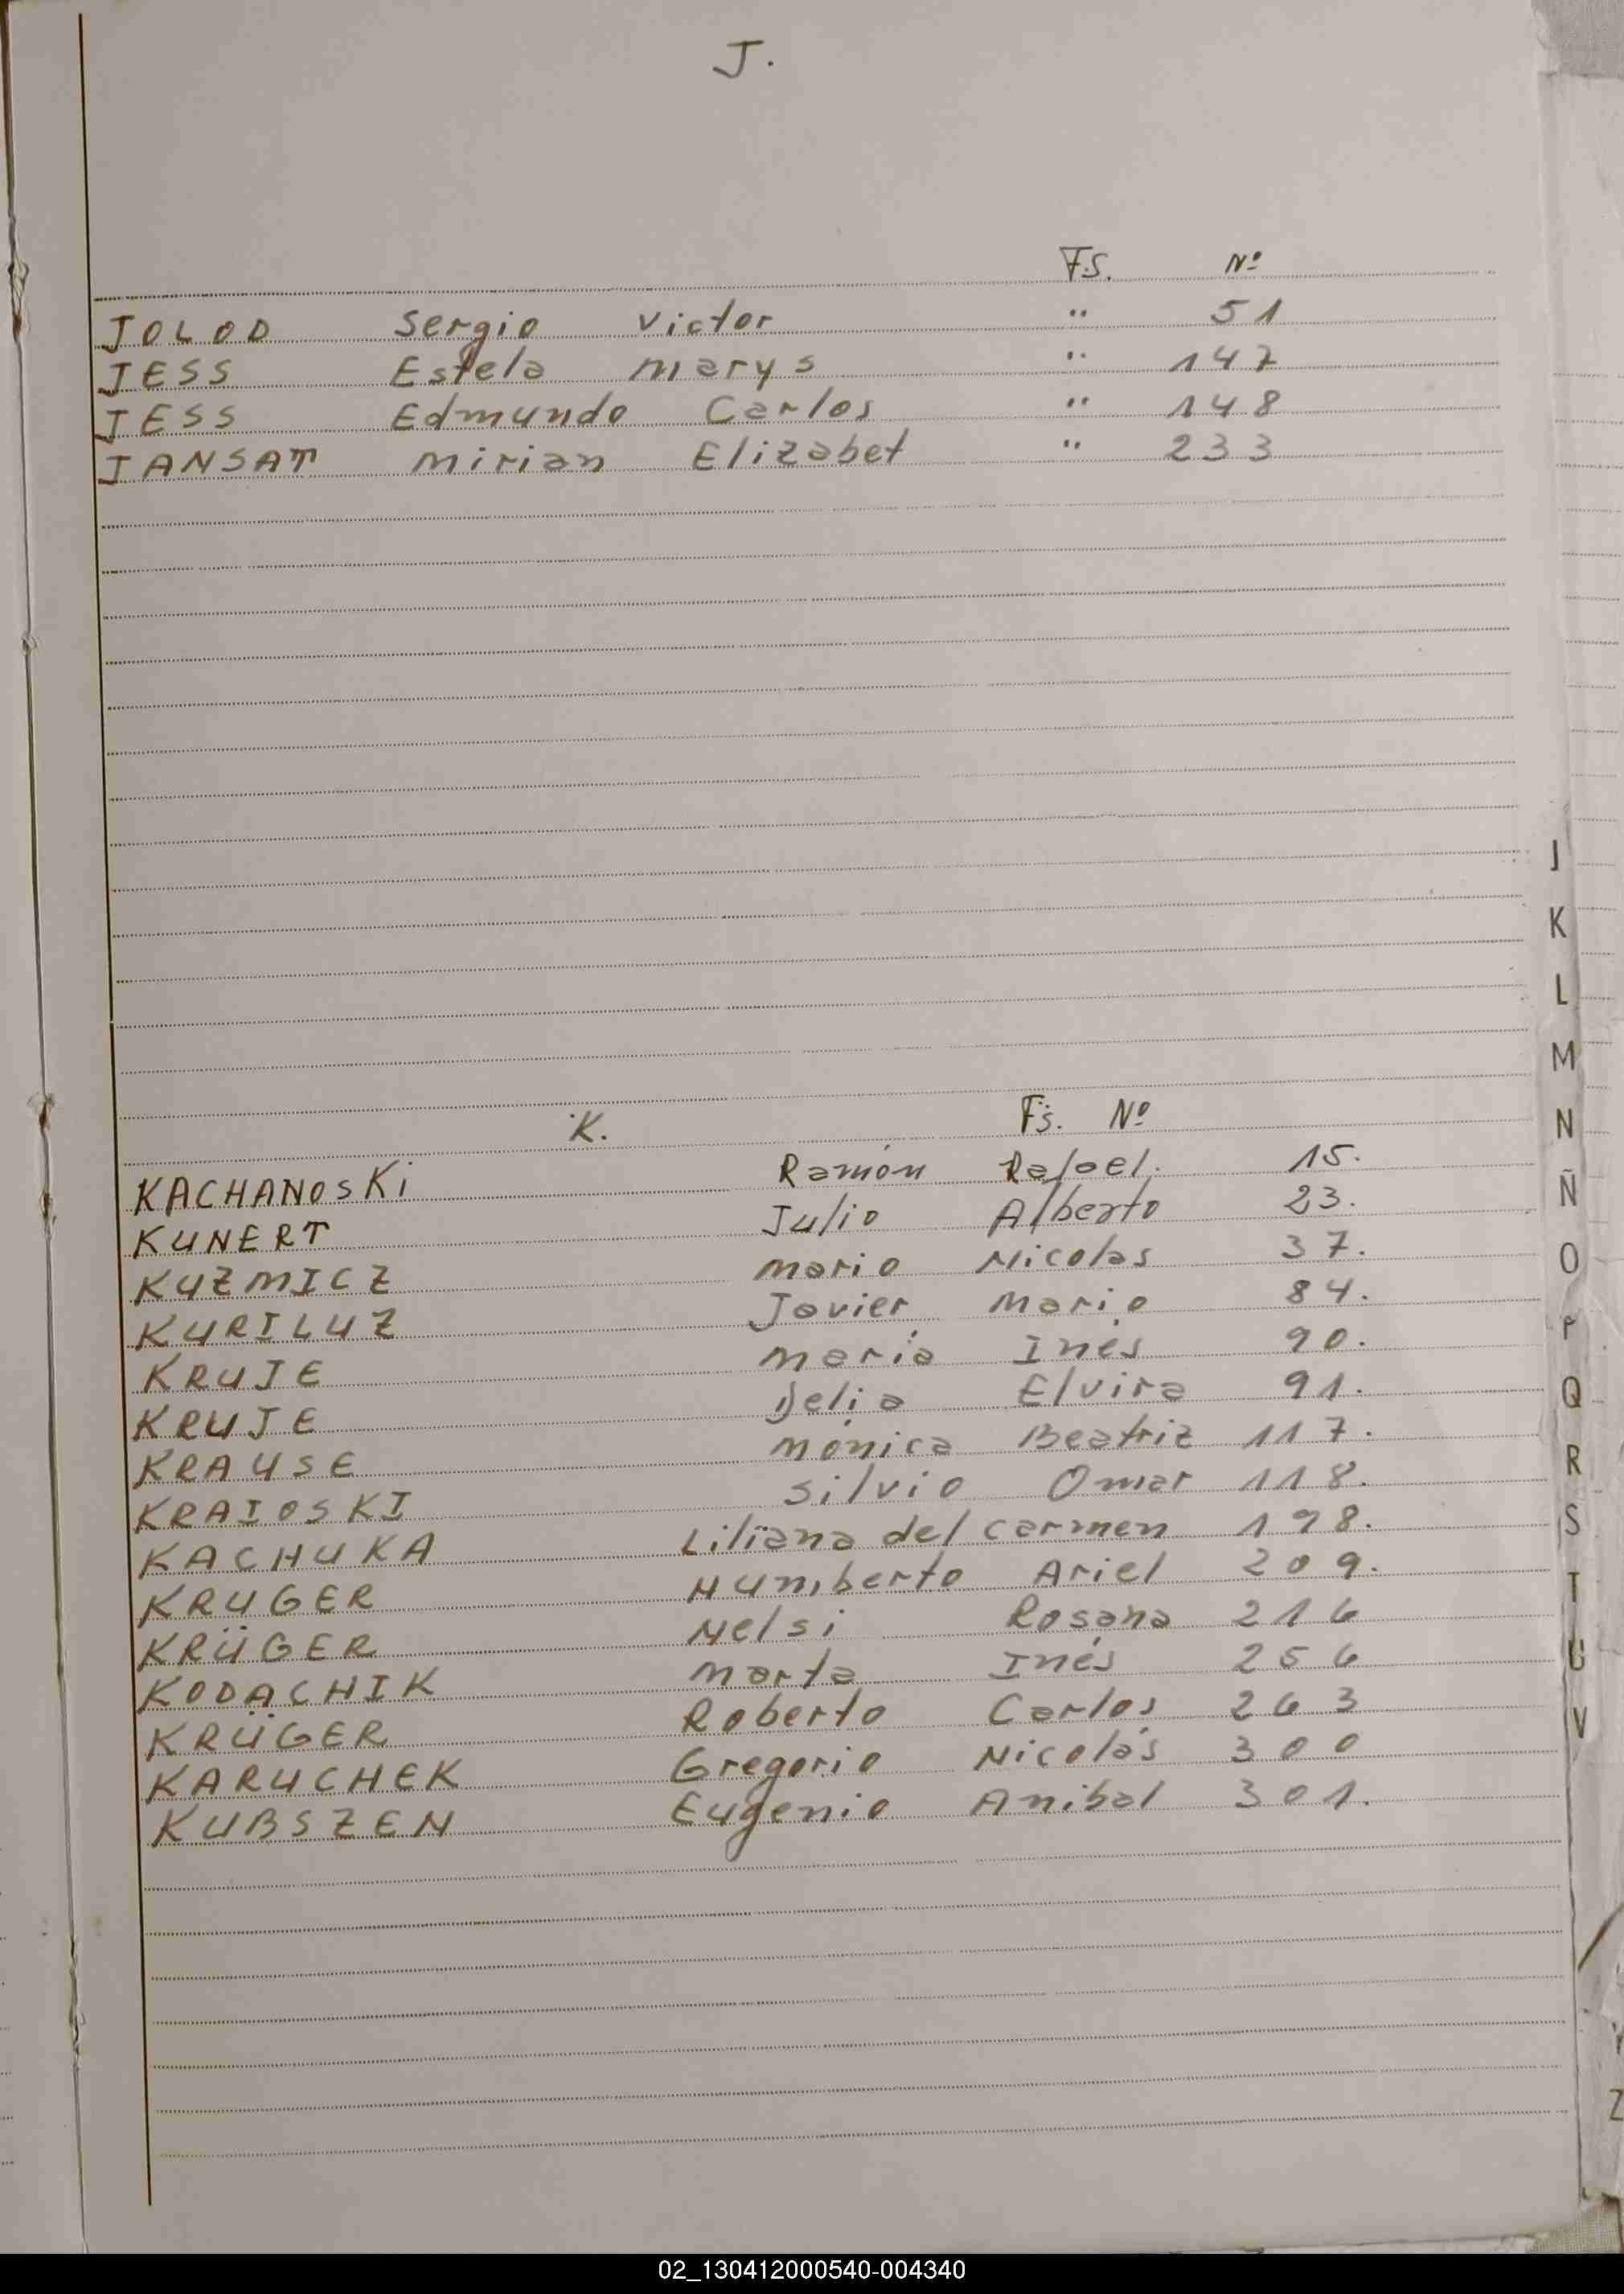 J.
F.S. Nº
JOLOD Sergio Victor " 51
JESS Estela Marys " 147
JESS Edmundo Carlos " 148
JANSAT Mirian Elizabet " 233
K. Fs. Nº
KACHANOSKi Ramón Rafael. 15.
KUNERT Julio Alberto 23.
KUZMICZ Mario Nicolas 37.
KURILUZ Javier Mario 84.
KRUJE María Inés 90.
KRUJE Delia Elvira 91.
KRAUSE Mónica Beatriz 117.
KRAIOSKI Silvio Omar 118.
KACHUKA Liliana del Carmen 198.
KRUGER Humberto Ariel 209.
KRÜGER Nelsi Rosana 216
KODACHIK Marta Inés 256
KRÜGER Roberto Carlos 263
KARUCHEK Gregorio Nicolás 300
KUBSZEN Eugenio Anibal 301.
J
K
L
M
N
Ñ
O
P
Q
R
S
T
U
V
Z
02_130412000540-004340